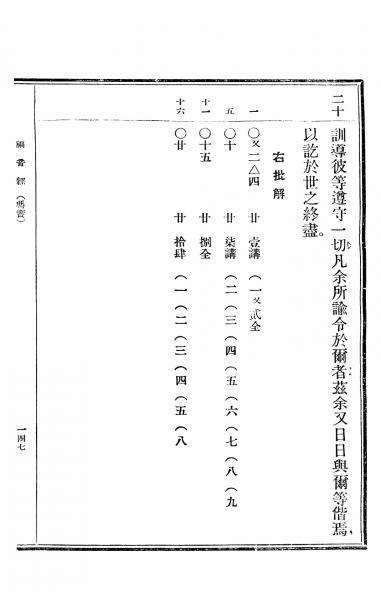 二十 訓導彼等遵守一切凡余所諭令於爾者茲余又日日與爾等偕焉，
以訖於世之終盡。
右批解
一 〇又二△四 廿 壹講 (一又貳全
五 〇十 廿 柒講 (二 (三 (四 (五 (六 (七 (八 (九
十一 〇十五 廿 捌全
十六 〇廿 廿 拾肆 (一 (二 (三 (四 (五 (八
福音經 (瑪竇)
一四七